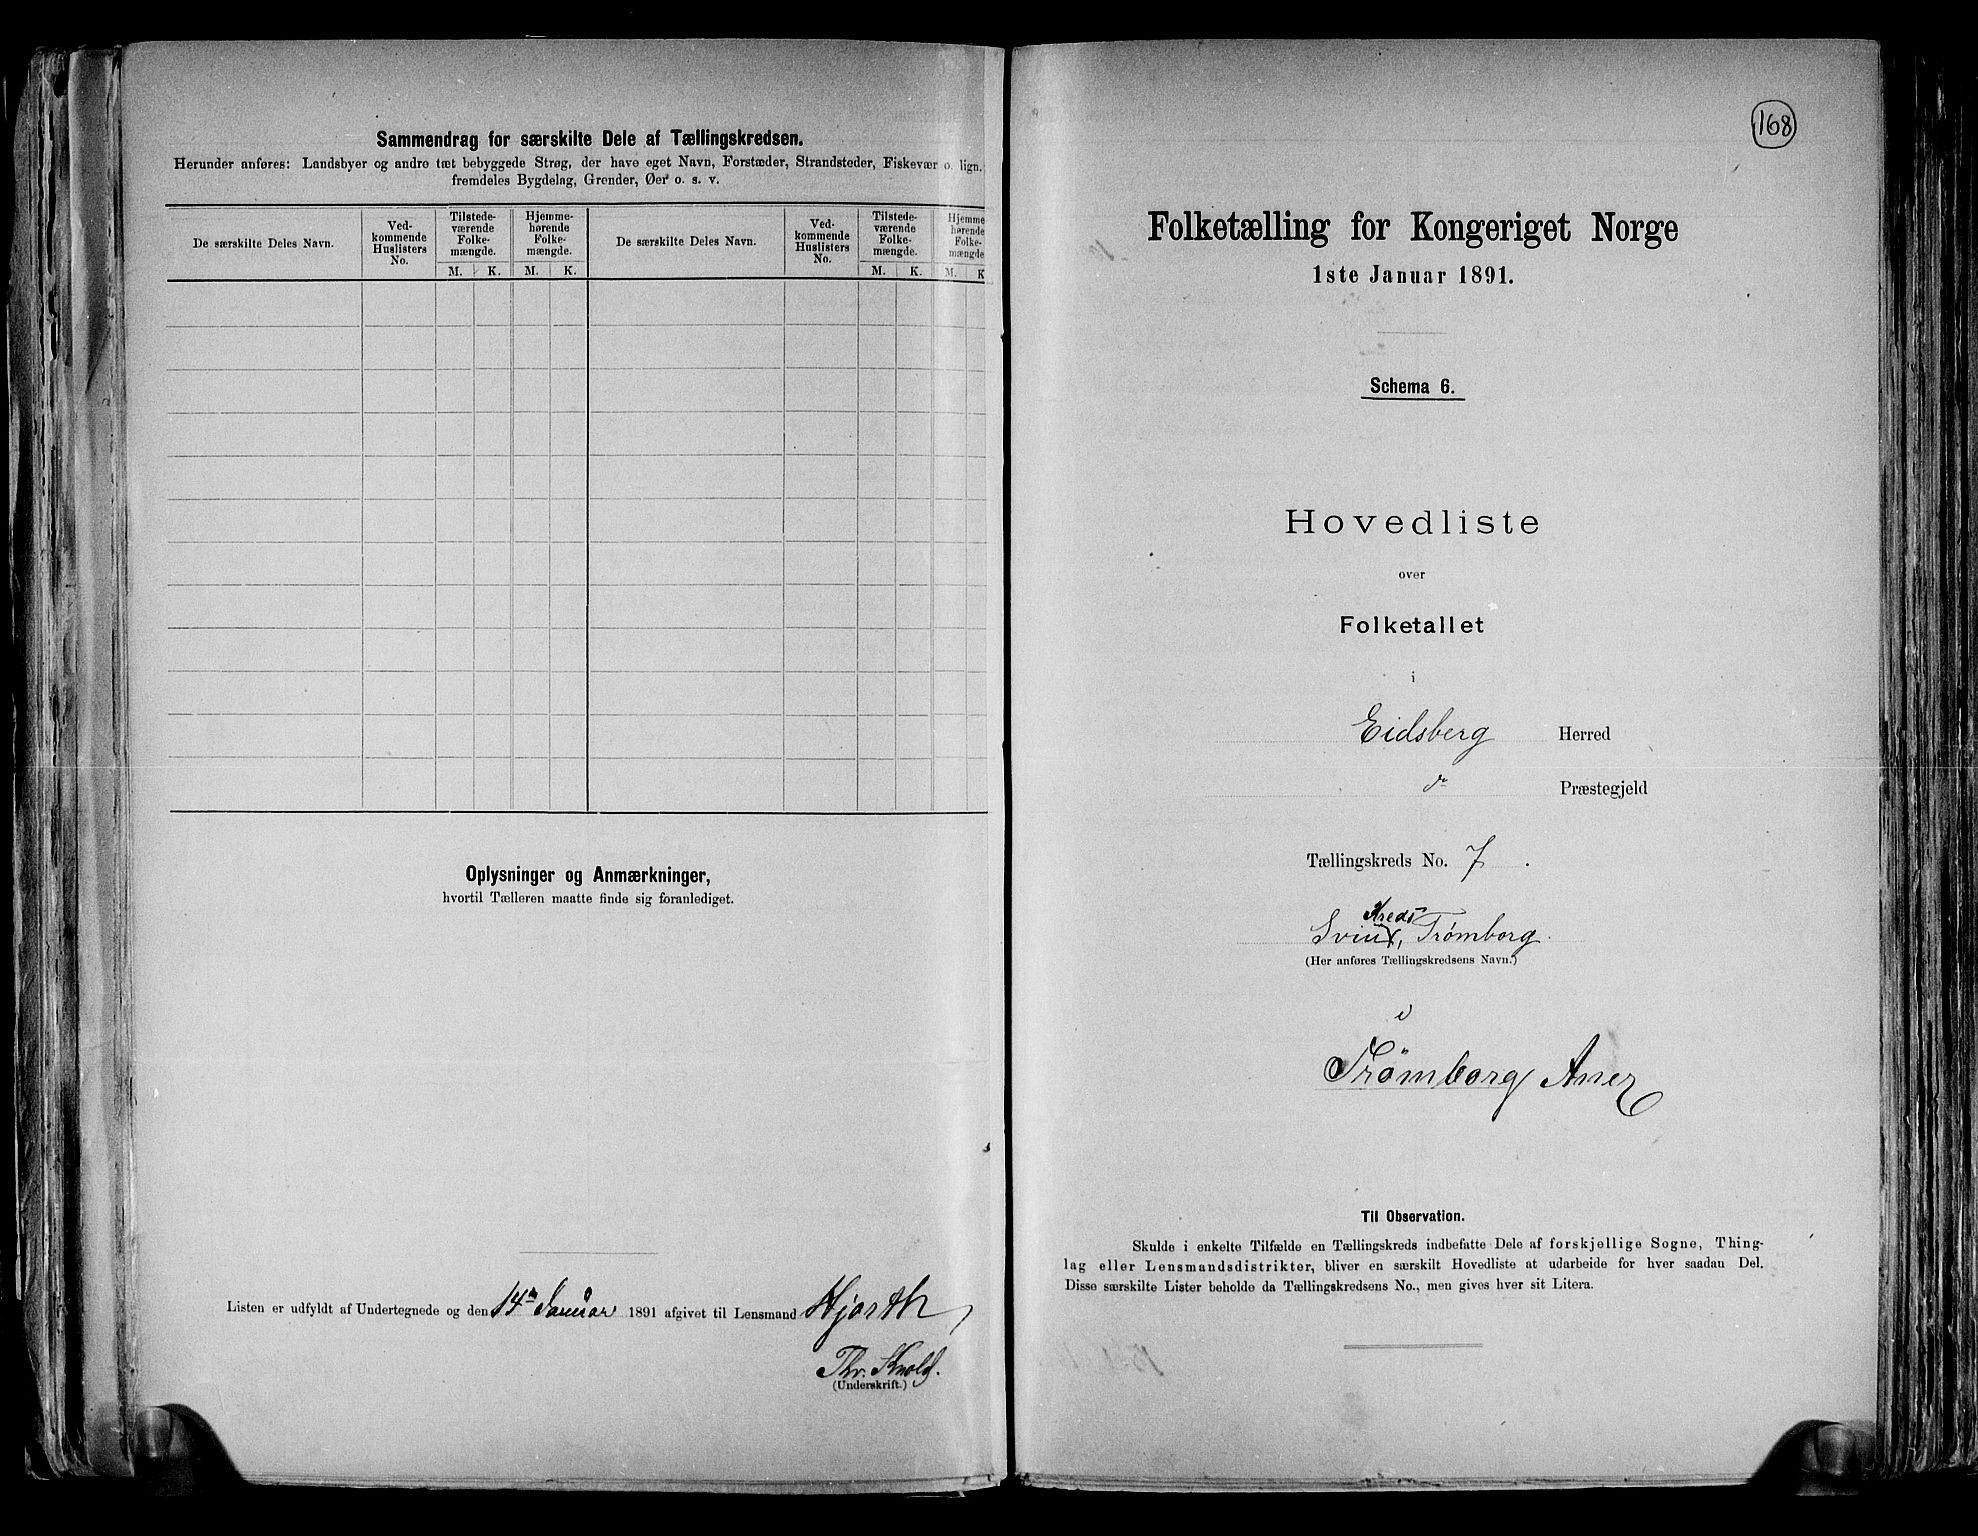 Sammendrag for særskilte Dele af Tællingskredsen.
Herunder anføres: Landsbyer og andre tæt bebyggede Strøg, der have eget Navn, Forstæder, Strandsteder, Fiskevær o. lign.
fremdeles Bygdelag, Grender, Øer o. s. v.
De særskilte Deles Navn.
Ved-
kommende
Huslisters
No.
Tilstede-
værende
Folke-
mængde.
Hjemme-
hørende
Folke-
mængde.
De særskilte Deles Navn.
Ved-
kommende
Huslisters
No.
Tilstede-
værende
Folke-
mængde.
Hjemme
hørende
Folke-
mængde
M. K. M. K. M. K. M. K
Oplysninger og Anmærkninger,
hvortil Tælleren maatte finde sig foranlediget.
Listen er udfyldt af Undertegnede og den 14de Januar 1891 afgivet til Lensmand Hjorth
Thv. Knold.
(Underskrift.)
168
Folketælling for Kongeriget Norge
1ste Januar 1891.
Schema 6.
Hovedliste
over
Folketallet
i
Eidsberg Herred
do Præstegjeld
Tællingskreds No. 7.
Kreds
Trømborg.
(Her anføres Tællingskredsens Navn.)
i
Trømborg Anex
Til Observation.
Skulde i enkelte Tilfælde en Tællingskreds indbefatte Dele af forskjellige Sogne, Thing-
lag eller Lensmandsdistrikter, bliver en særskilt Hovedliste at udarbeide for hver saadan Del.
Disse særskilte Lister beholde da Tællingskredsens No., men gives hver sit Litera.